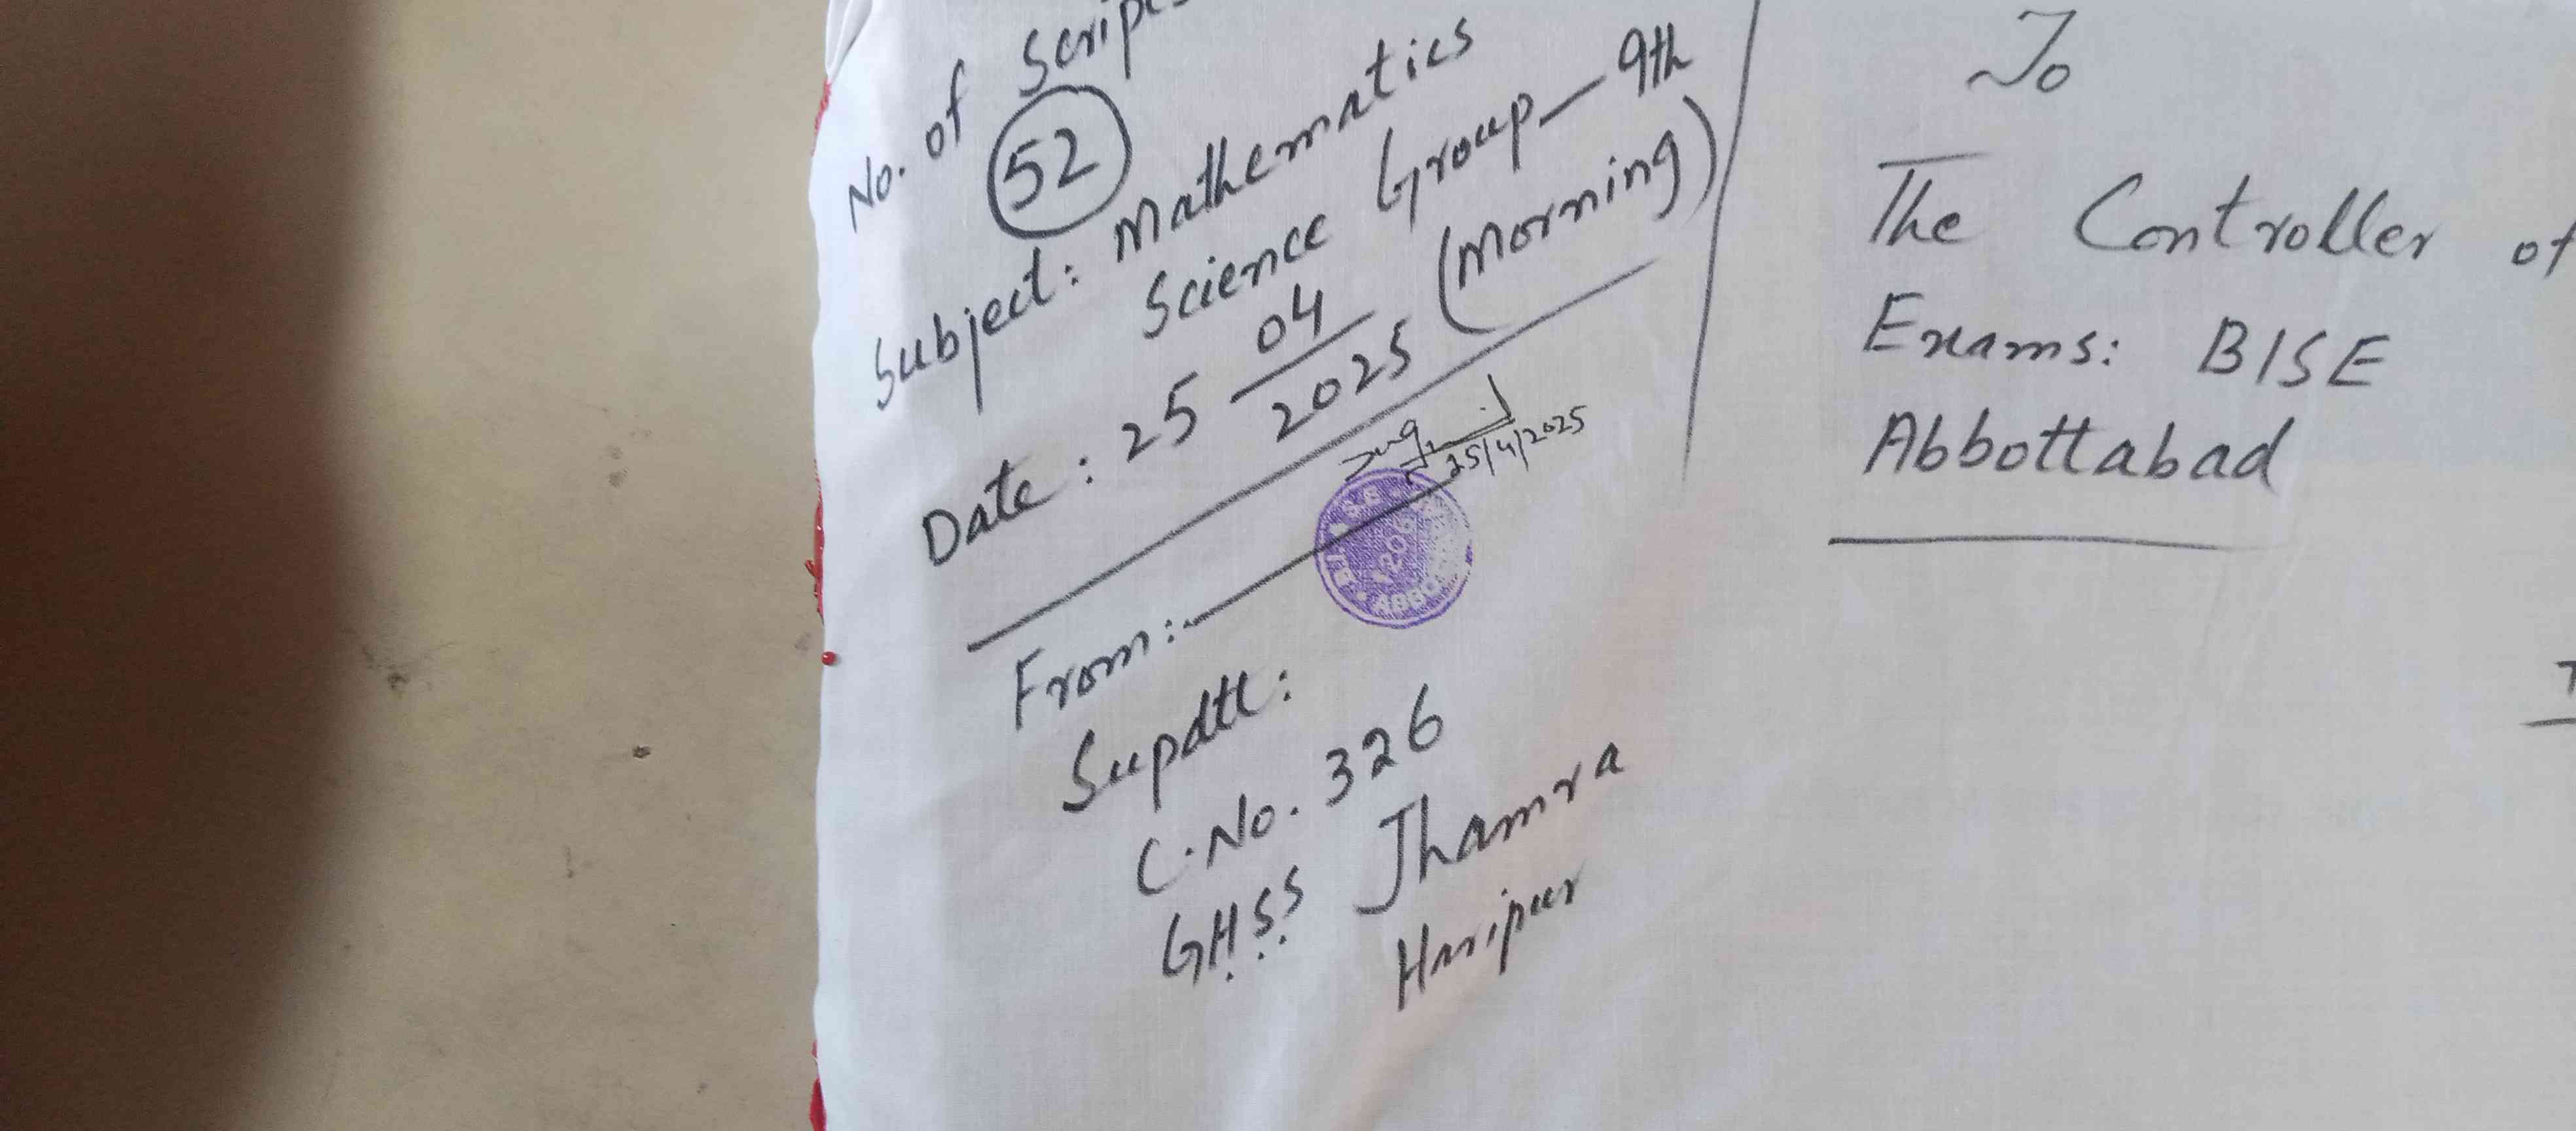 No. of Scripts
52
Subject: Mathematics
Science Group - 9th
Date: 25 04/2025 (Morning)
25/4/2025
From:
Supdtt:
C.No. 326
G.H.S.S Jhamra
Haripur
To
The Controller of
Exams: BISE
Abbottabad